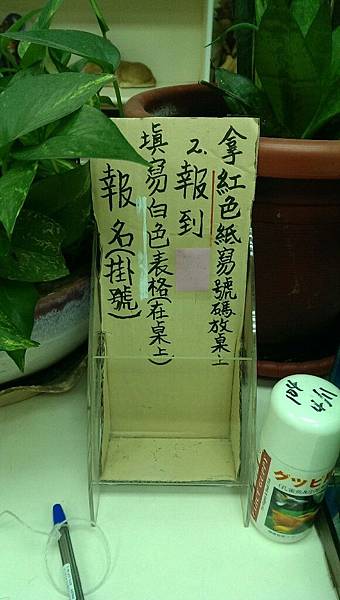 報名(掛號)
填寫白色表格(在桌上)
2.報到
拿紅色紙寫號碼放桌上
グッピ